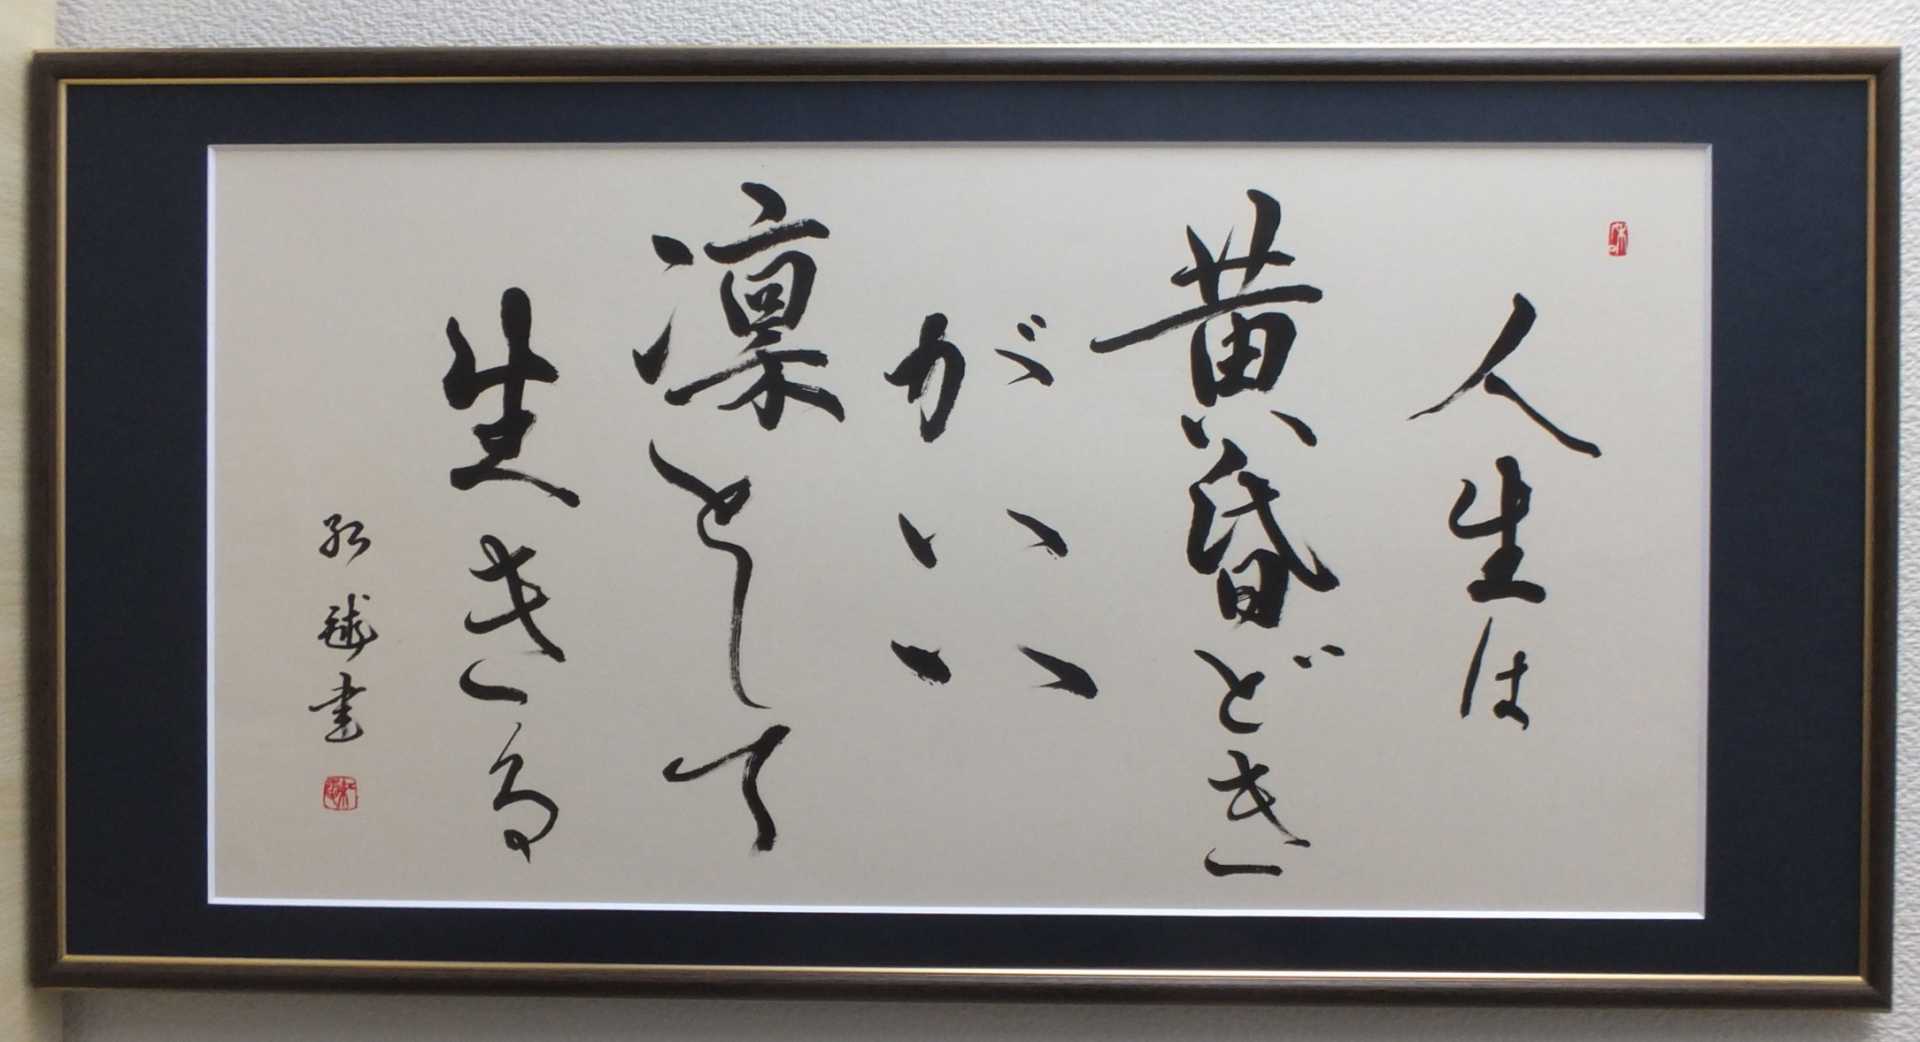 人生は
黄昏どき
がいい
凛として
生きる
書